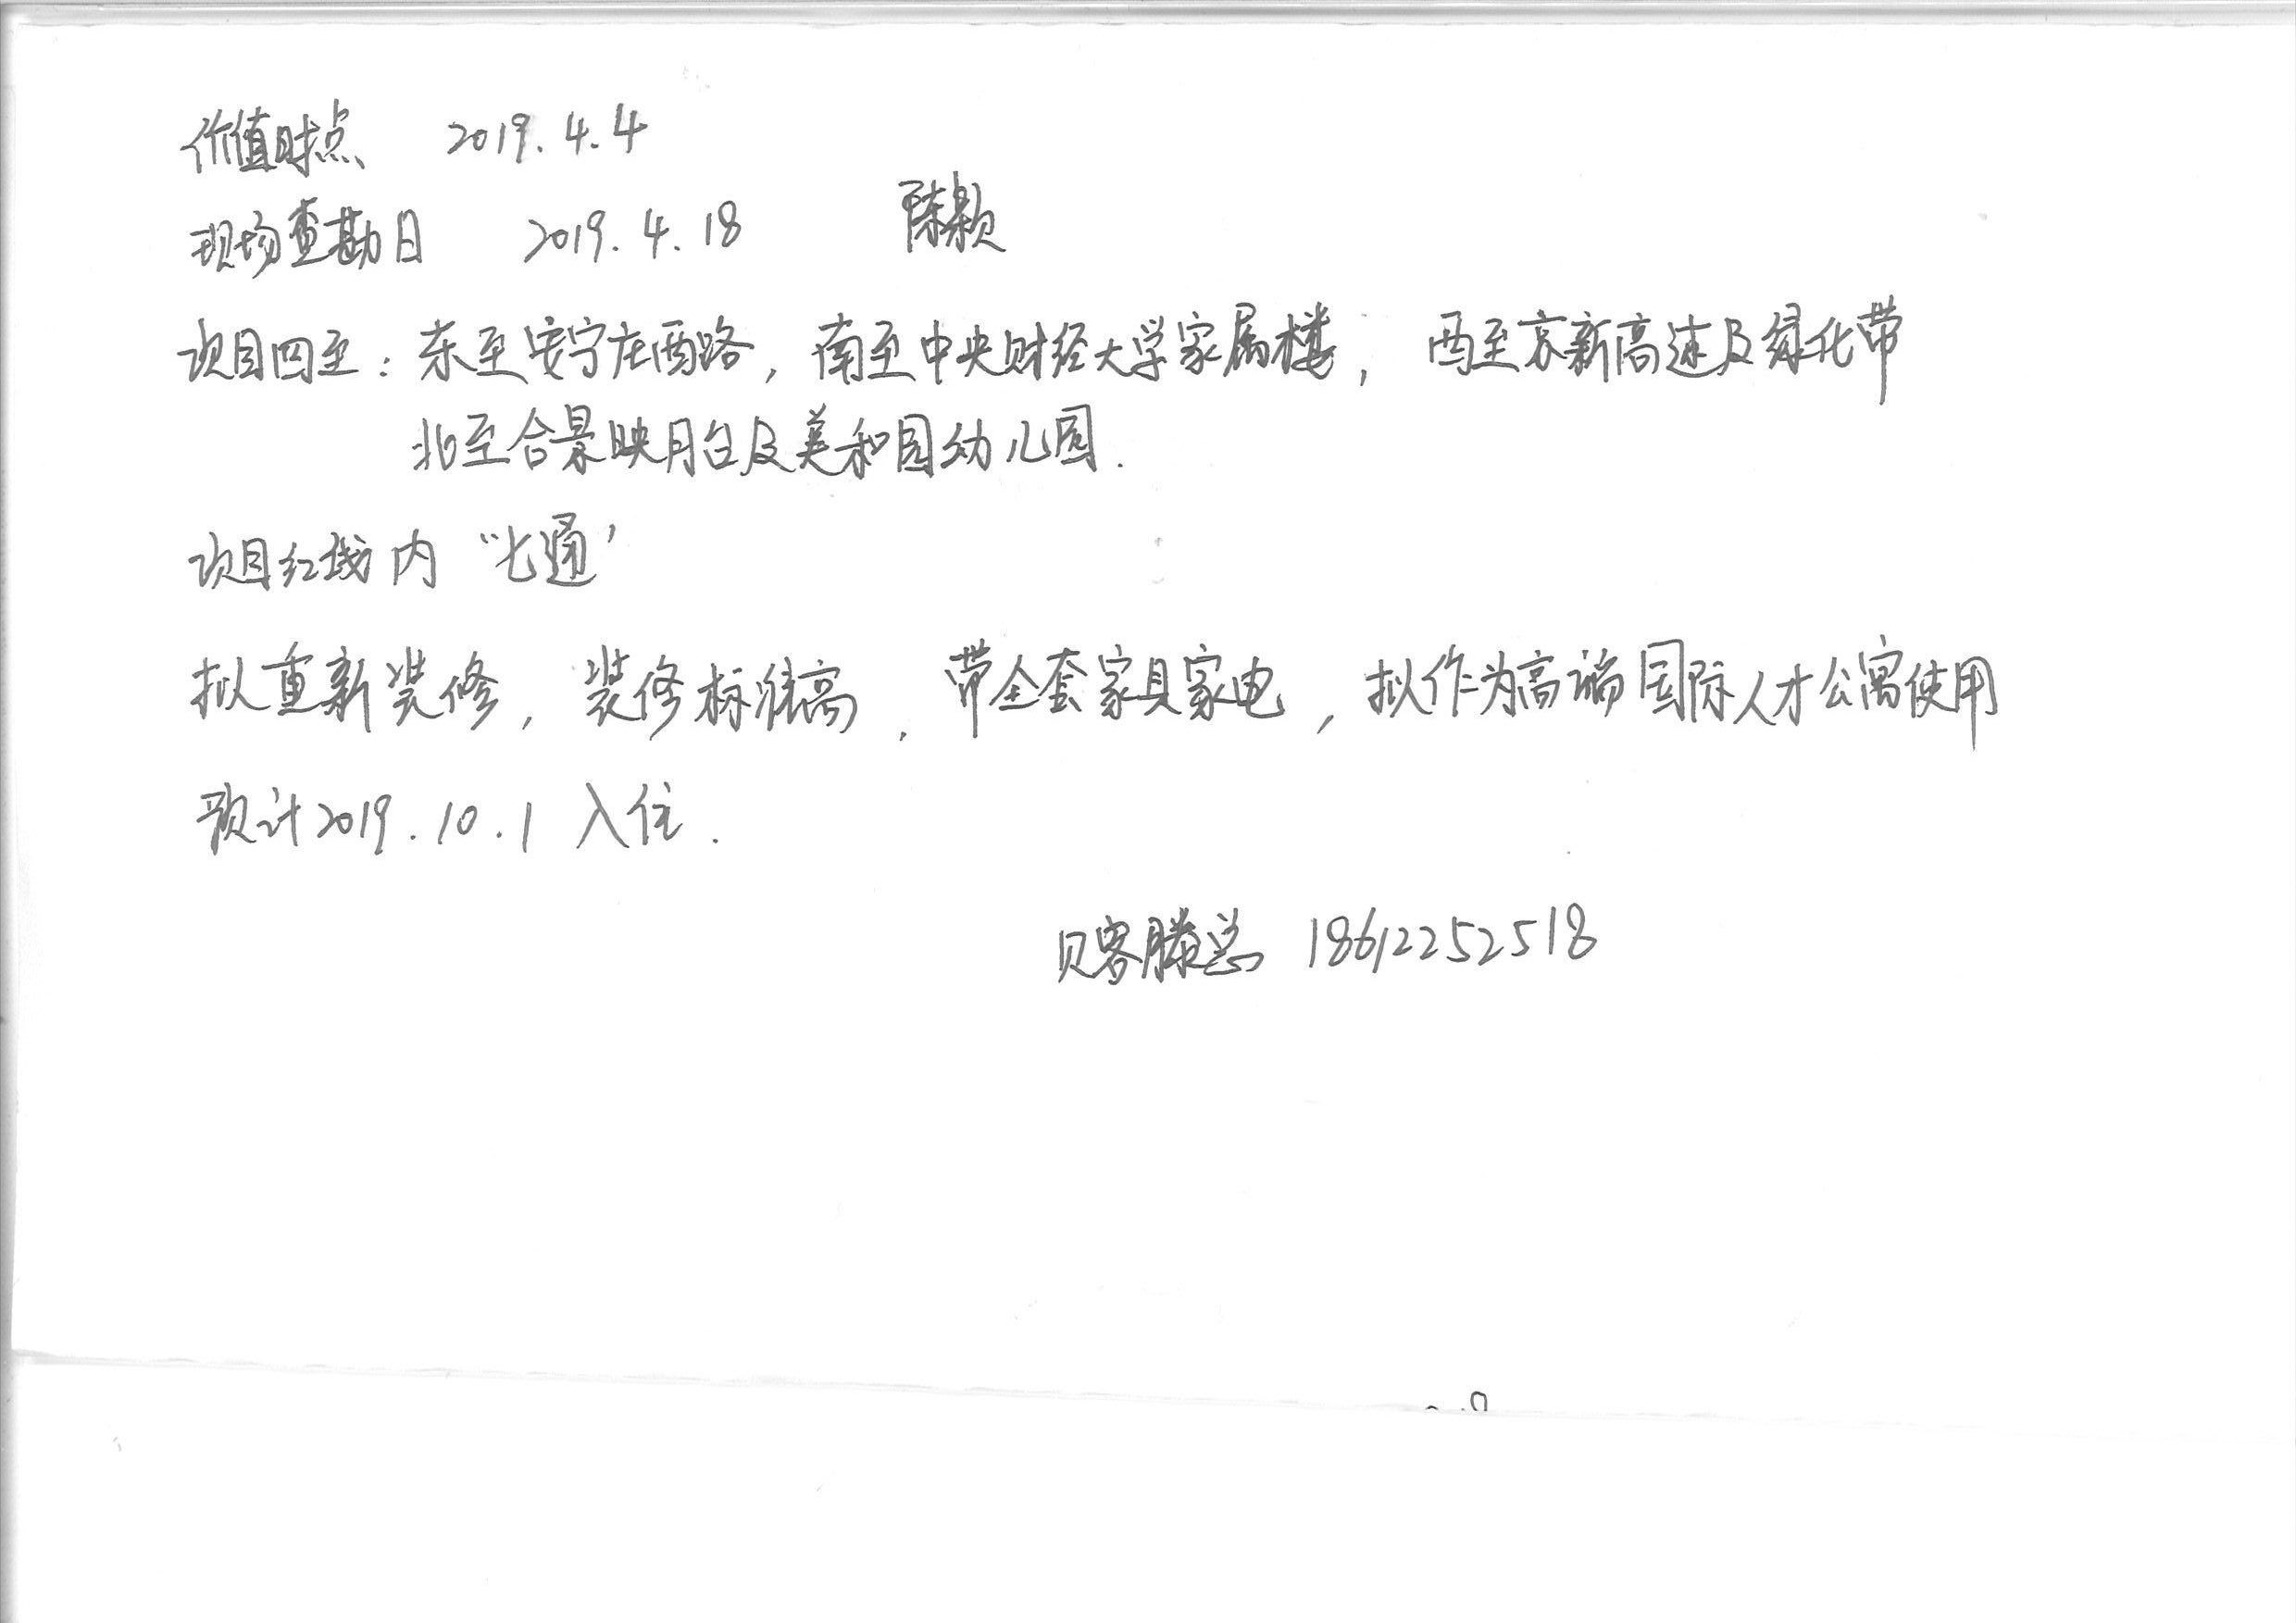 价值时点 2019.4.4
现场查勘日 2019.4.18 陈颖
项目四至：东至安宁庄西路，南至中央财经大学家属楼，西至京新高速及绿化带
北至合景映月台及美和园幼儿园.
项目红线内“七通’
拟重新装修，装修标准高，带全套家具家电，拟作为高端国际人才公寓使用
预计2019.10.1入住.
贝客滕总 18612252518